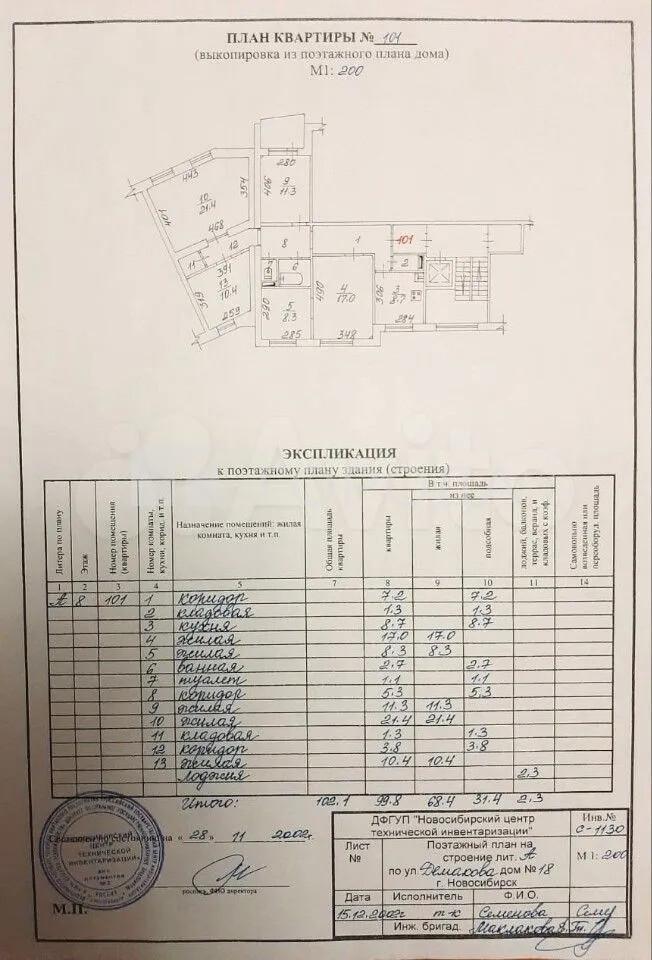 ПЛАН КВАРТИРЫ № 101
(выкопировка из поэтажного плана дома)
М1: 200
280
9
11.3
406
443
10
21.4
354
401
468
12
11
391
13
10.4
319
259
8
1
101
2
7
6
4
17.0
490
348
5
8.3
290
285
3
8.7
306
284
ЭКСПЛИКАЦИЯ
к поэтажному плану здания (строения)
Литера по плану
Этаж
Номер помещения (квартиры)
Номер комнаты, кухни, корид. и т.п.
Назначение помещений: жилая комната, кухня и т.п.
Общая площадь квартиры
В т.ч. площадь
квартиры
из нее
жилая
подсобная
лоджий, балконов, террас, веранд и кладовых с коэф.
Самовольно возведенная или переоборуд. площадь
1 2 3 4 5 7 8 9 10 11 14
А 8 101 1 коридор 7.2 7.2
2 кладовая 1.3 1.3
3 кухня 8.7 8.7
4 жилая 17.0 17.0
5 жилая 8.3 8.3
6 ванная 2.7 2.7
7 туалет 1.1 1.1
8 коридор 5.3 5.3
9 жилая 11.3 11.3
10 жилая 21.4 21.4
11 кладовая 1.3 1.3
12 коридор 3.8 3.8
13 жилая 10.4 10.4
лоджия 2.3
Итого: 102.1 99.8 68.4 31.4 2.3
по состоянию на « 28 » 11 2002г.
НОВОСИБИРСКИЙ
ЦЕНТР
ТЕХНИЧЕСКОЙ
ИНВЕНТАРИЗАЦИИ
ДЛЯ
ДОКУМЕНТОВ
№ 2
роспись, ФИО директора
М.П.
ДФГУП "Новосибирский центр
технической инвентаризации"
Инв.№
С-1130
Лист
№
Поэтажный план на
строение лит. А
по ул. Демакова дом № 18
г. Новосибирск
М 1: 200
Дата Исполнитель Ф.И.О.
15.12.2002г т-к Семенова Сему
Инж. бригад. Маклакова